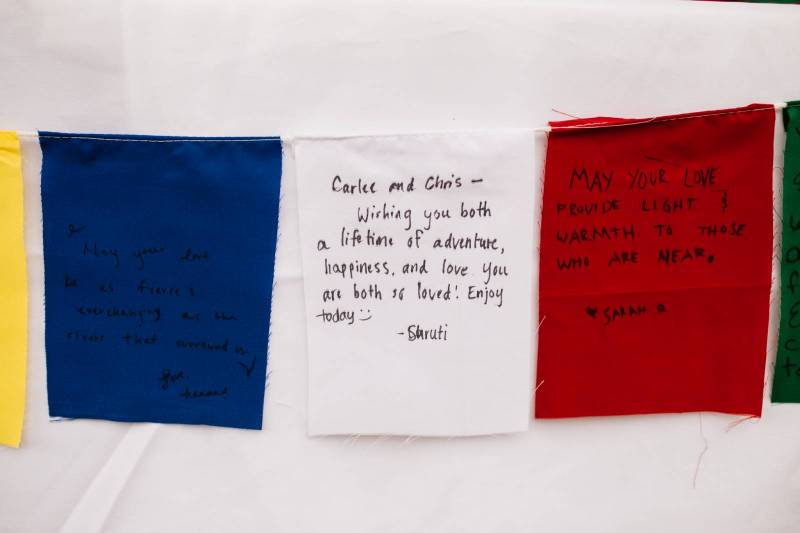 May your love
be as fierce &
everchanging as the
rivers that surround us.
love,
Carlee and Chris —
Wishing you both
a lifetime of adventure,
happiness, and love you
are both so loved! Enjoy
today :)
- Shruti
MAY YOUR LOVE
PROVIDE LIGHT &
WARMTH TO THOSE
WHO ARE NEAR.
♥ SARAH